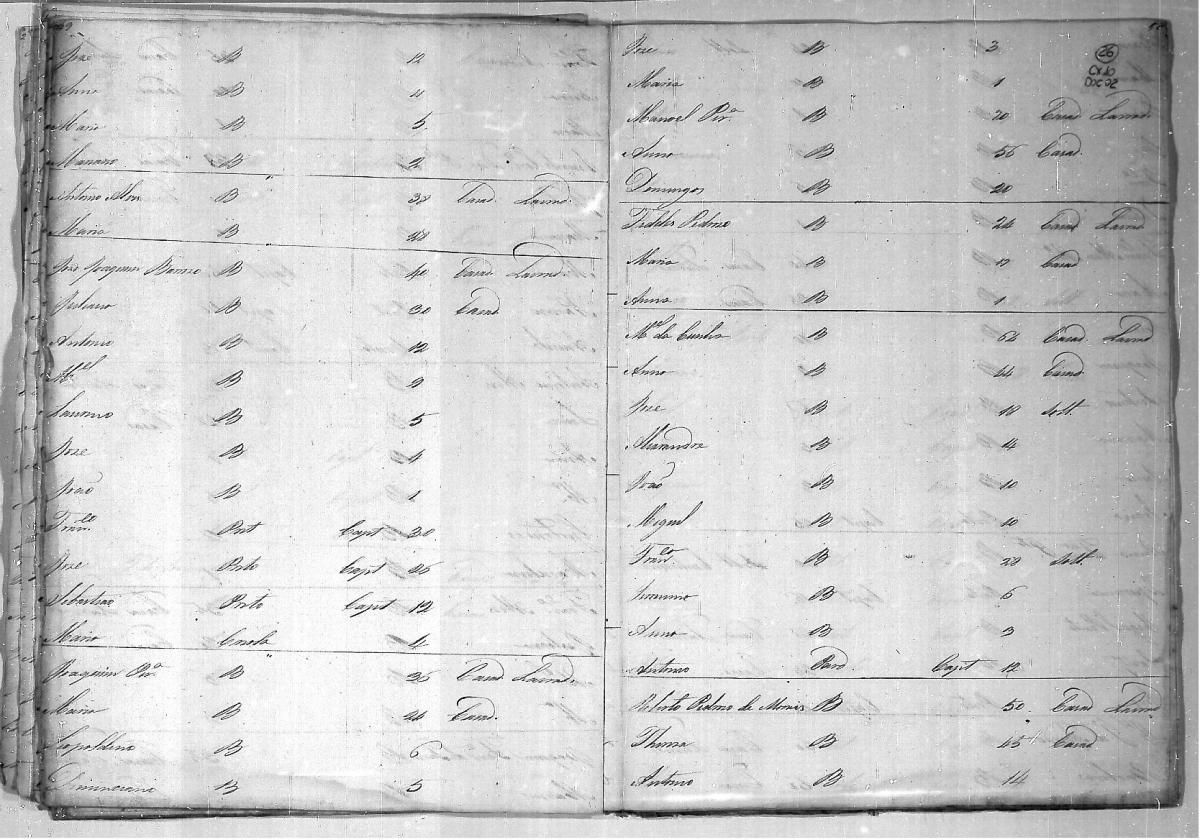 José B 12
Anna B 4
Maria B 5
Mariano B 2
Antonio Alvs B 38 Cazad. Lavrad.
Maria B 28
José Joaquim B 40 Cazad. Lavrad.
Juliana B 30 Cazad
Antonio B 12
M.el B 9
B 5
José B 4
João B 1
Fran.co Pret Capt 30
José Preto Capt 26
Sebastião Preto Capt 12
Maria Creola 4
Joaquim Pir.a B 36 Cazad Lavrad
Maria B 24 Cazad.
Leopoldina B 6
B 5
José B 3
26
CX 10
DOC 02
Maria B 1
Manoel Pir.a B 70 Cazad Lavrad.
Anna B 56 Cazad
Domingos B 20
Fidelis Pedrozo B 24 Cazad Lavrad
Maria B 17 Cazad
Anna B 1
M.el da Cunha B 62 Cazad Lavrad
Anna B 44 Cazad
José B 18 Solt.
Alexandre B 14
João B 10
Miguel B 10
Fran.co B 28 Solt.
B 6
Anna B 3
Antonio Pard. Capt 12
Roberto Pedrozo de Moraes B 50 Cazad Lavrad
Thereza B 45 Cazad
Antonio B 14